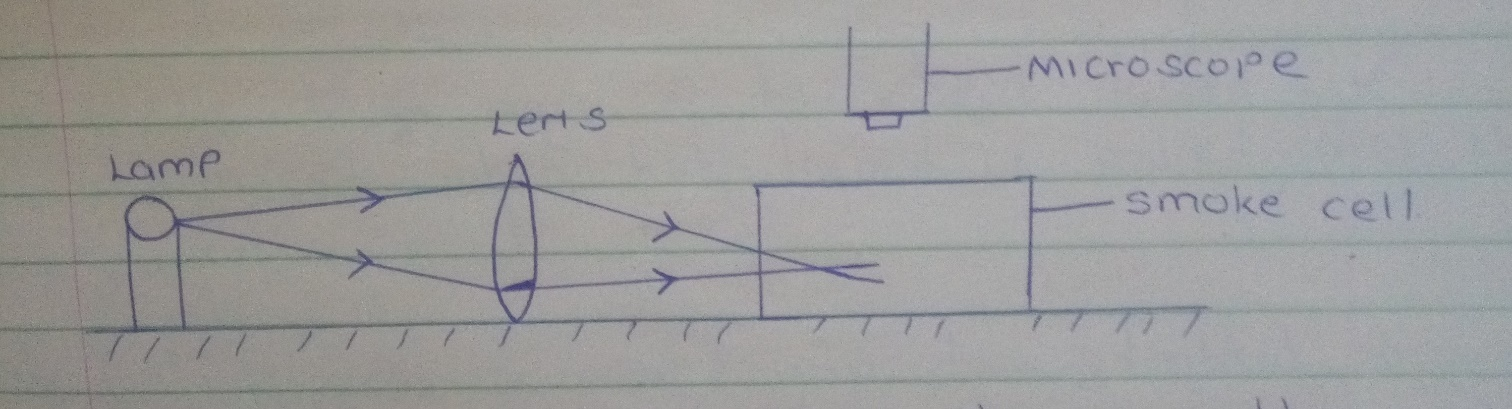 Microscope
Lens
Lamp
smoke cell